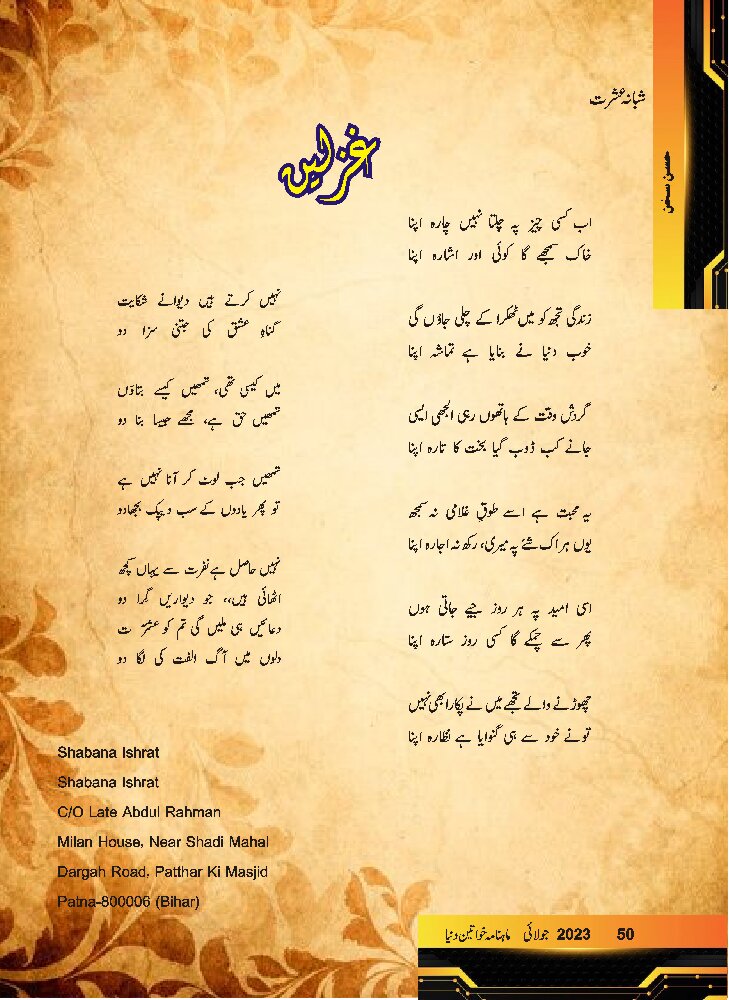 شبانہ عشرت
حسن سخن
غزلیں
اب کسی چیز پہ چلتا نہیں چارہ اپنا
خاک سمجھے گا کوئی اور اشارہ اپنا
زندگی تجھ کو میں ٹھکرا کے چلی جاؤں گی
خوب دنیا نے بنایا ہے تماشہ اپنا
گردشِ وقت کے ہاتھوں رہی الجھی ایسی
جانے کب ڈوب گیا بخت کا تارہ اپنا
یہ محبت ہے اسے طوقِ غلامی نہ سمجھ
یوں ہر اک شئے پہ میری، رکھ نہ اجارہ اپنا
اسی امید پہ ہر روز جیے جاتی ہوں
پھر سے چمکے گا کسی روز ستارہ اپنا
چھوڑنے والے تجھے میں نے پکارا بھی نہیں
تونے خود سے ہی گنوایا ہے نظارہ اپنا
نہیں کرتے ہیں دیوانے شکایت
گناہِ عشق کی جتنی سزا دو
میں کیسی تھی، تمھیں کیسے بتاؤں
تمھیں حق ہے، مجھے جیسا بنا دو
تمھیں جب لوٹ کر آنا نہیں ہے
تو پھر یادوں کے سب دیپک بجھادو
نہیں حاصل ہے نفرت سے یہاں کچھ
اٹھائی ہیں،، جو دیواریں گرا دو
دعائیں ہی ملیں گی تم کو عشرؔت
دلوں میں آگ الفت کی لگا دو
Shabana Ishrat
Shabana Ishrat
C/O Late Abdul Rahman
Milan House, Near Shadi Mahal
Dargah Road, Patthar Ki Masjid
Patna-800006 (Bihar)
ماہنامہ خواتین دنیا جولائی 2023 50